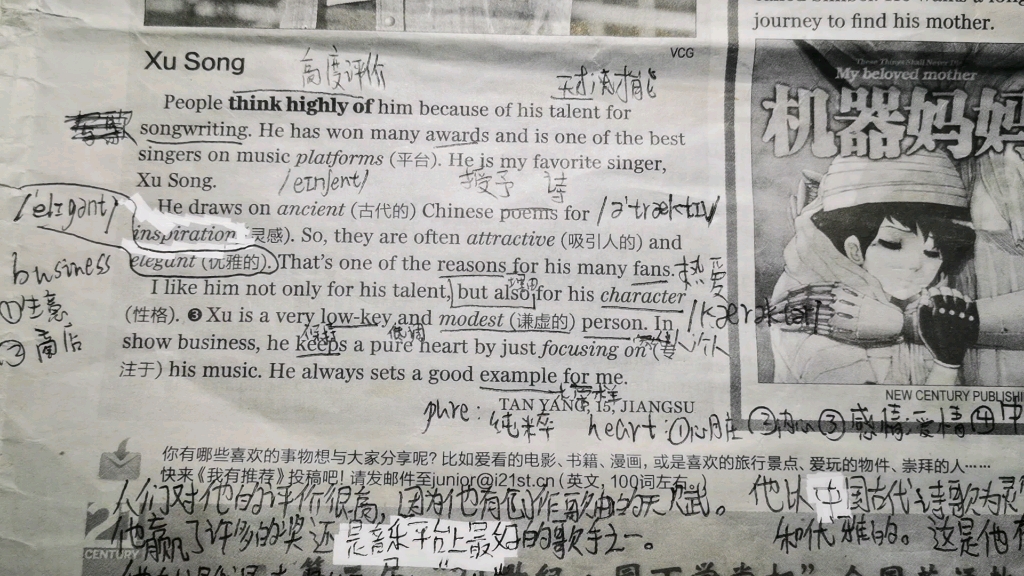 journey to find his mother.
VCG
Xu Song
高度评价
People think highly of him because of his talent for
songwriting. He has won many awards and is one of the best
singers on music platforms (平台). He is my favorite singer,
Xu Song.
授予 诗
He draws on ancient (古代的) Chinese poems for
inspiration 灵感). So, they are often attractive (吸引人的) and
elegant (优雅的). That's one of the reasons for his many fans.
热爱
business
①生意
I like him not only for his talent, but also for his character
(性格). ❸ Xu is a very low-key and modest (谦虚的) person. In
保持 低调
show business, he keeps a pure heart by just focusing on (专
注于) his music. He always sets a good example for me.
TAN YANG, 15, JIANGSU
pure: 纯粹 heart: ①心脏 ②内心 ③感情,爱情 ④
My beloved mother
机器妈妈
NEW CENTURY PUBLISHI
你有哪些喜欢的事物想与大家分享呢? 比如爱看的电影、书籍、漫画, 或是喜欢的旅行景点、爱玩的物件、崇拜的人……
快来《我有推荐》投稿吧! 请发邮件至junior@i21st.cn (英文, 100词左右。)
人们对他的评价很高, 因为他有创作歌曲的天赋。 他以中国古代诗歌为灵
他赢了许多的奖还是音乐平台上最好的歌手之一。 和优雅的。这是他有
CENTURY